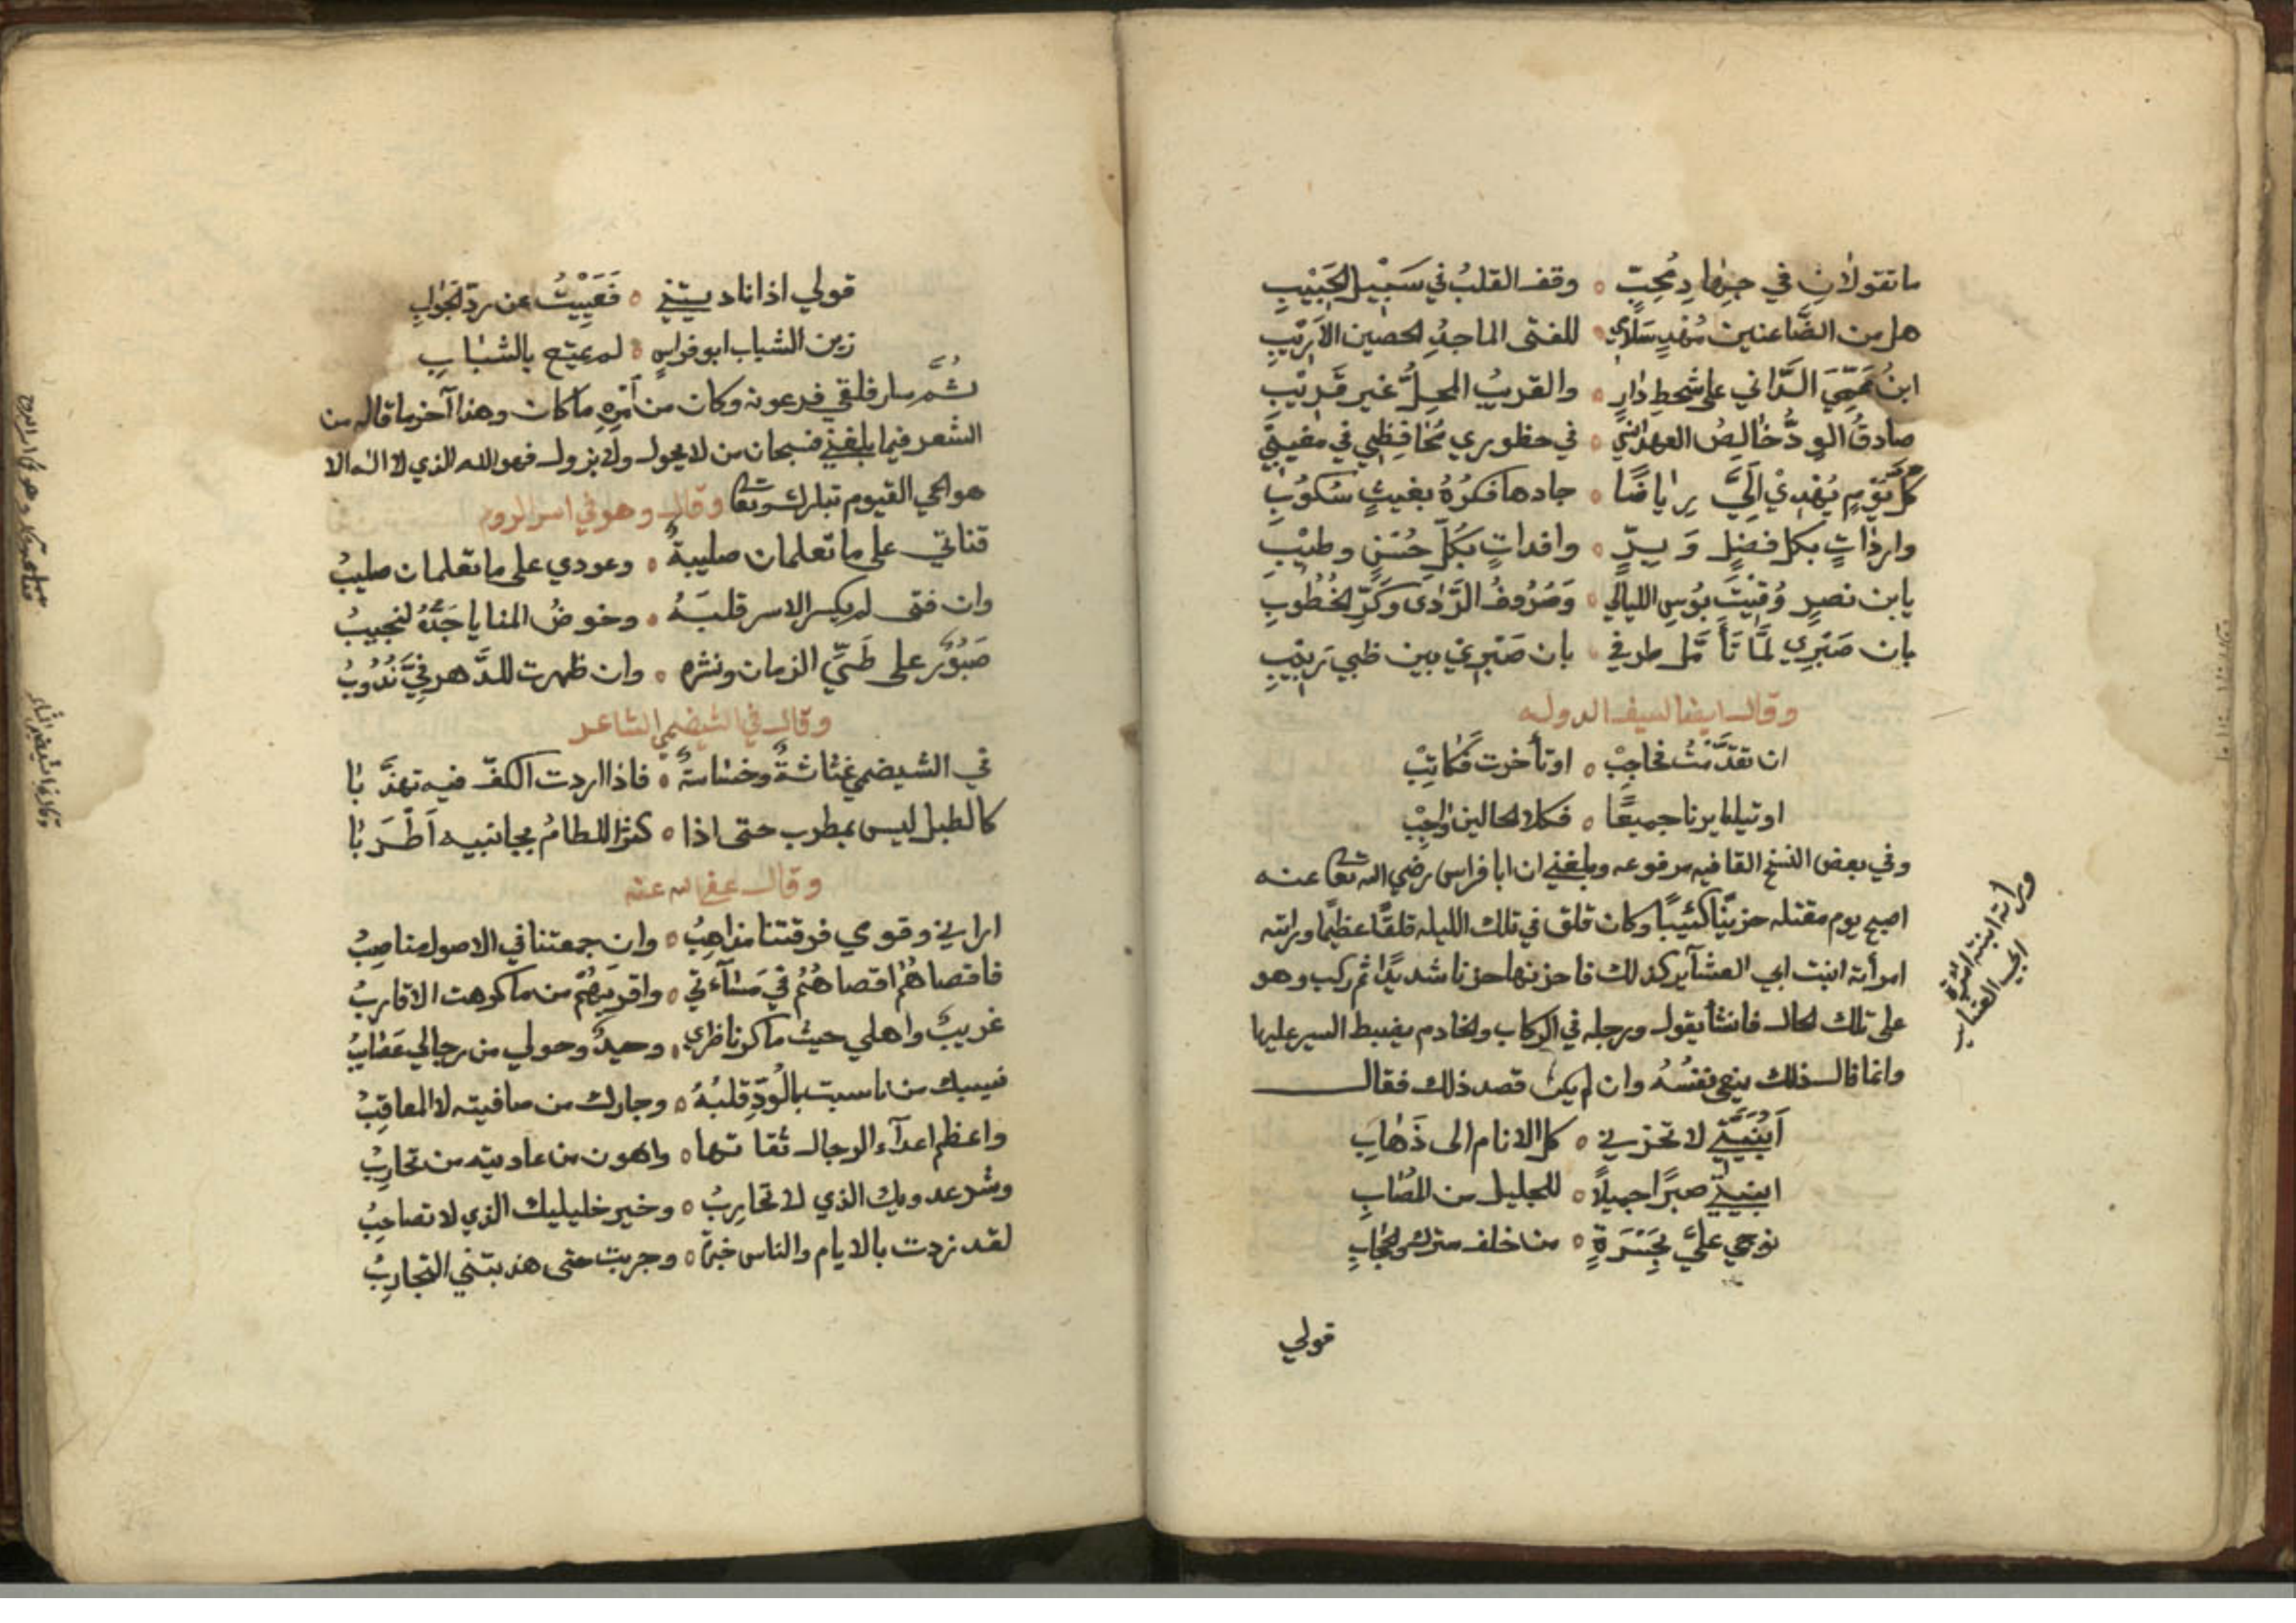 ما تقولان في جهاد محب ه وقف القلب في سبيل الحبيب
هل من الضاعنين مهد سلامي ه للفتى الماجد الحصين الاريب
ابن عمي الداني على شحط دار ه والقريب المحل غير قريب
صادق الود خالص العهد انسي في حظوري محافظي في مغيبي
كل يوم يهدي الي رياضا ه جادها فكره بغيث سكوب
واردات بكل فضل و بر ه وافدات بكل حسن وطيب
يا بن نصر وقيت بوس الليالي ه وصروف الردى وكر الخطوب
بان صبري لما تأمل طرفي بان صبري ببين ظبي ربيب
وقال ايضا لسيف الدوله
ان تقدمت فحاجب ه او تأخرت فكاتب
او تيا سرنا جميعا ه فكلا الحالين واجب
وفي بعض النسخ القافيه مرفوعه وبلغني ان ابا فراس رضي الله تعا عنه
اصبح يوم مقتله حزينا كئيبا وكان قلق في تلك الليله قلقا عظيما وراته
امرأته ابنت ابي العشآير كذلك فاحزنها حزنا شديدا ثم ركب وهو
على تلك الحال فانشأ يقول ورجله في الركاب والخادم يضبط السير عليها
وانما قال ذلك ينعي نفسه وان لم يكن قصد ذلك فقال
أبنيتي لا تحزني ه كل الانام الى ذهاب
ابنيتي صبرا جميلا ه للجليل من المصاب
نوحي علي بحسرة ه من خلف سترك والحجاب
قولي
وراته ابنته امرأة
ابي العشاير
قولي اذا ناديتني ه فعييت عن رد الجواب
زين الشباب ابو فراس ه لم يمتع بالشباب
ثم سار فلقي فرعونه وكان من امره ما كان وهذا آخر ما قاله من
الشعر فيما بلغني فسبحان من لا يحول ولا يزول فهو الله الذي لا اله الا
هو الحي القيوم تبارك وتعا وقال وهو في اسر الروم
قناتي على ما تعلمان صليبة ه وعودي على ما تعلمان صليب
وان فتى لم يكسر الاسر قلبه ه وخوض المنايا جده لنجيب
صبور على طي الزمان ونشره ه وان ظهرت للدهر في ندوب
وقال في الشيضمي الشاعر
في الشيضمي غثاثة وخساسة ه فاذا اردت الكف فيه تهذبا
كالطبل ليس بمطرب حتى اذا ه كثر اللطام بجانبيه اطربا
وقال عفي الله عنه
اراني وقومي فرقتنا مذاهب ه وان جمعتنا في الاصول مناصب
فاقصاهم اقصاهم في مسآءتي ه واقربهم من ما كرهت الاقارب
غريب واهلي حيث ما كر ناظري ه وحيد وحولي من رجالي عصايب
نسيبك من ناسبت بالود قلبه ه وجارك من صافيته لا المعاقب
واعظم اعدآء الرجال ثقاتها ه واهون من عاديته من تحارب
وشر عدويك الذي لا تحارب ه وخير خليليك الذي لا تصاحب
لقد زدت بالايام والناس خبرة ه وجربت حتى هذبتني التجارب